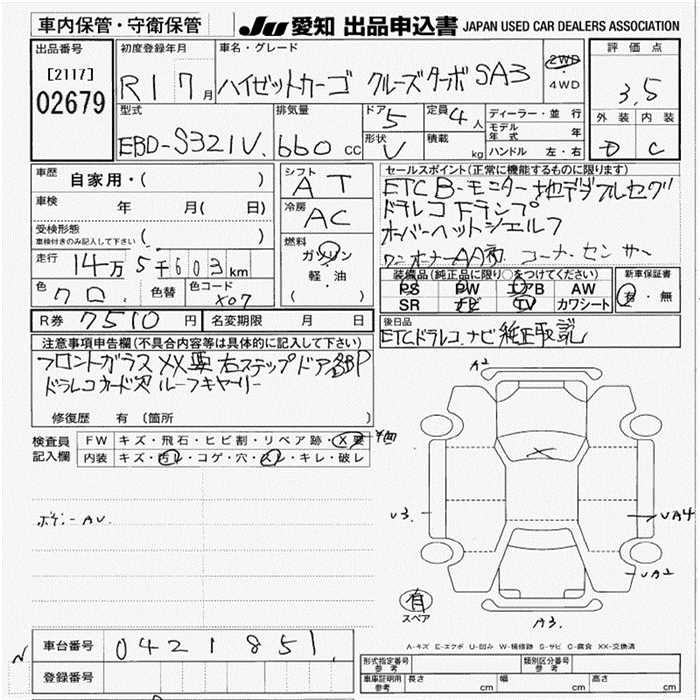 車内保管・守衛保管
JU 愛知 出品申込書 JAPAN USED CAR DEALERS ASSOCIATION
出品番号
[2117]
02679
初度登録年月
R1 7月
車名・グレード
ハイゼットカーゴ クルーズターボ SA3
2WD
・4WD
評価点
3.5
外装 内装
D C
型式
EBD-S321V
排気量
660cc
ドア
5
形状
V
定員
4人
積載
kg
ディーラー・並行
モデル年式 年
ハンドル 左・右
車歴
自家用・( )
車検
年 月( 日)
受検形態
車検付きのみ記入して下さい
( )
走行
14万5千603km
色
クロ
色替
色コード
X07
シフト
AT
冷房
AC
燃料
ガソリン
軽・油
( )
セールスポイント(正常に機能するものに限ります)
ETC Bモニター 地デジフルセグ
ドラレコ Fランプ
オーバーヘットシェルフ
ワンオーナー コーナーセンサー
装備品(純正品に限り○をつけてください)
PS PW エアB AW
SR ナビ TV カワシート
新車保証書
有・無
R券 7510円
名変期限 月 日
後日品
ETCドラレコ ナビ 純正取説
注意事項申告欄(不具合内容等は具体的に記入して下さい)
フロントガラスXX要 右ステップドア
ドラレコカード欠 ルーフキャリー
修復歴 有(箇所 )
検査員
記入欄
FW キズ・飛石・ヒビ割・リペア跡・X要
内装 キズ・汚レ・コゲ・穴・スレ・キレ・破レ
ボデーAU
A2
U3
UA4
UA2
A3
有
スペア
A-キズ E-エクボ U-凹み W-補修跡 S-サビ C-腐食 XX-交換済
車台番号
0421851
登録番号
形式指定番号
参考
類別区分番号
参考
車庫証明用
参考
長さ cm
幅 cm
高さ cm